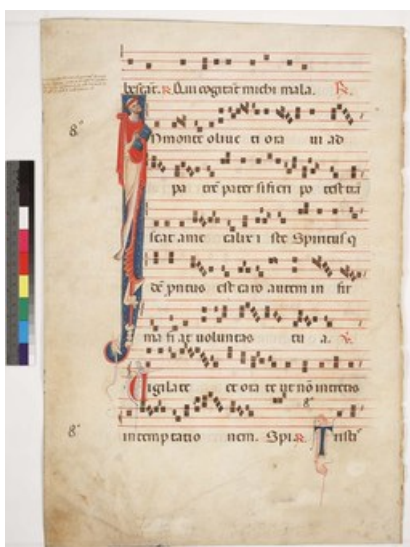 bescāt. ℟ Qui cogitāt michi mala. ℟
8°
In monte oliue ti ora ui ad
pa trē pater si fieri po test trā
seat a me calix i ste Spiritus q
dē prītus est caro autem in fir
ma fi at uoluntas tu a. ℣
Uigila te et ora te ut nō intretis
8°
8°
in temptatio nem. Spi. ℟ Tristis